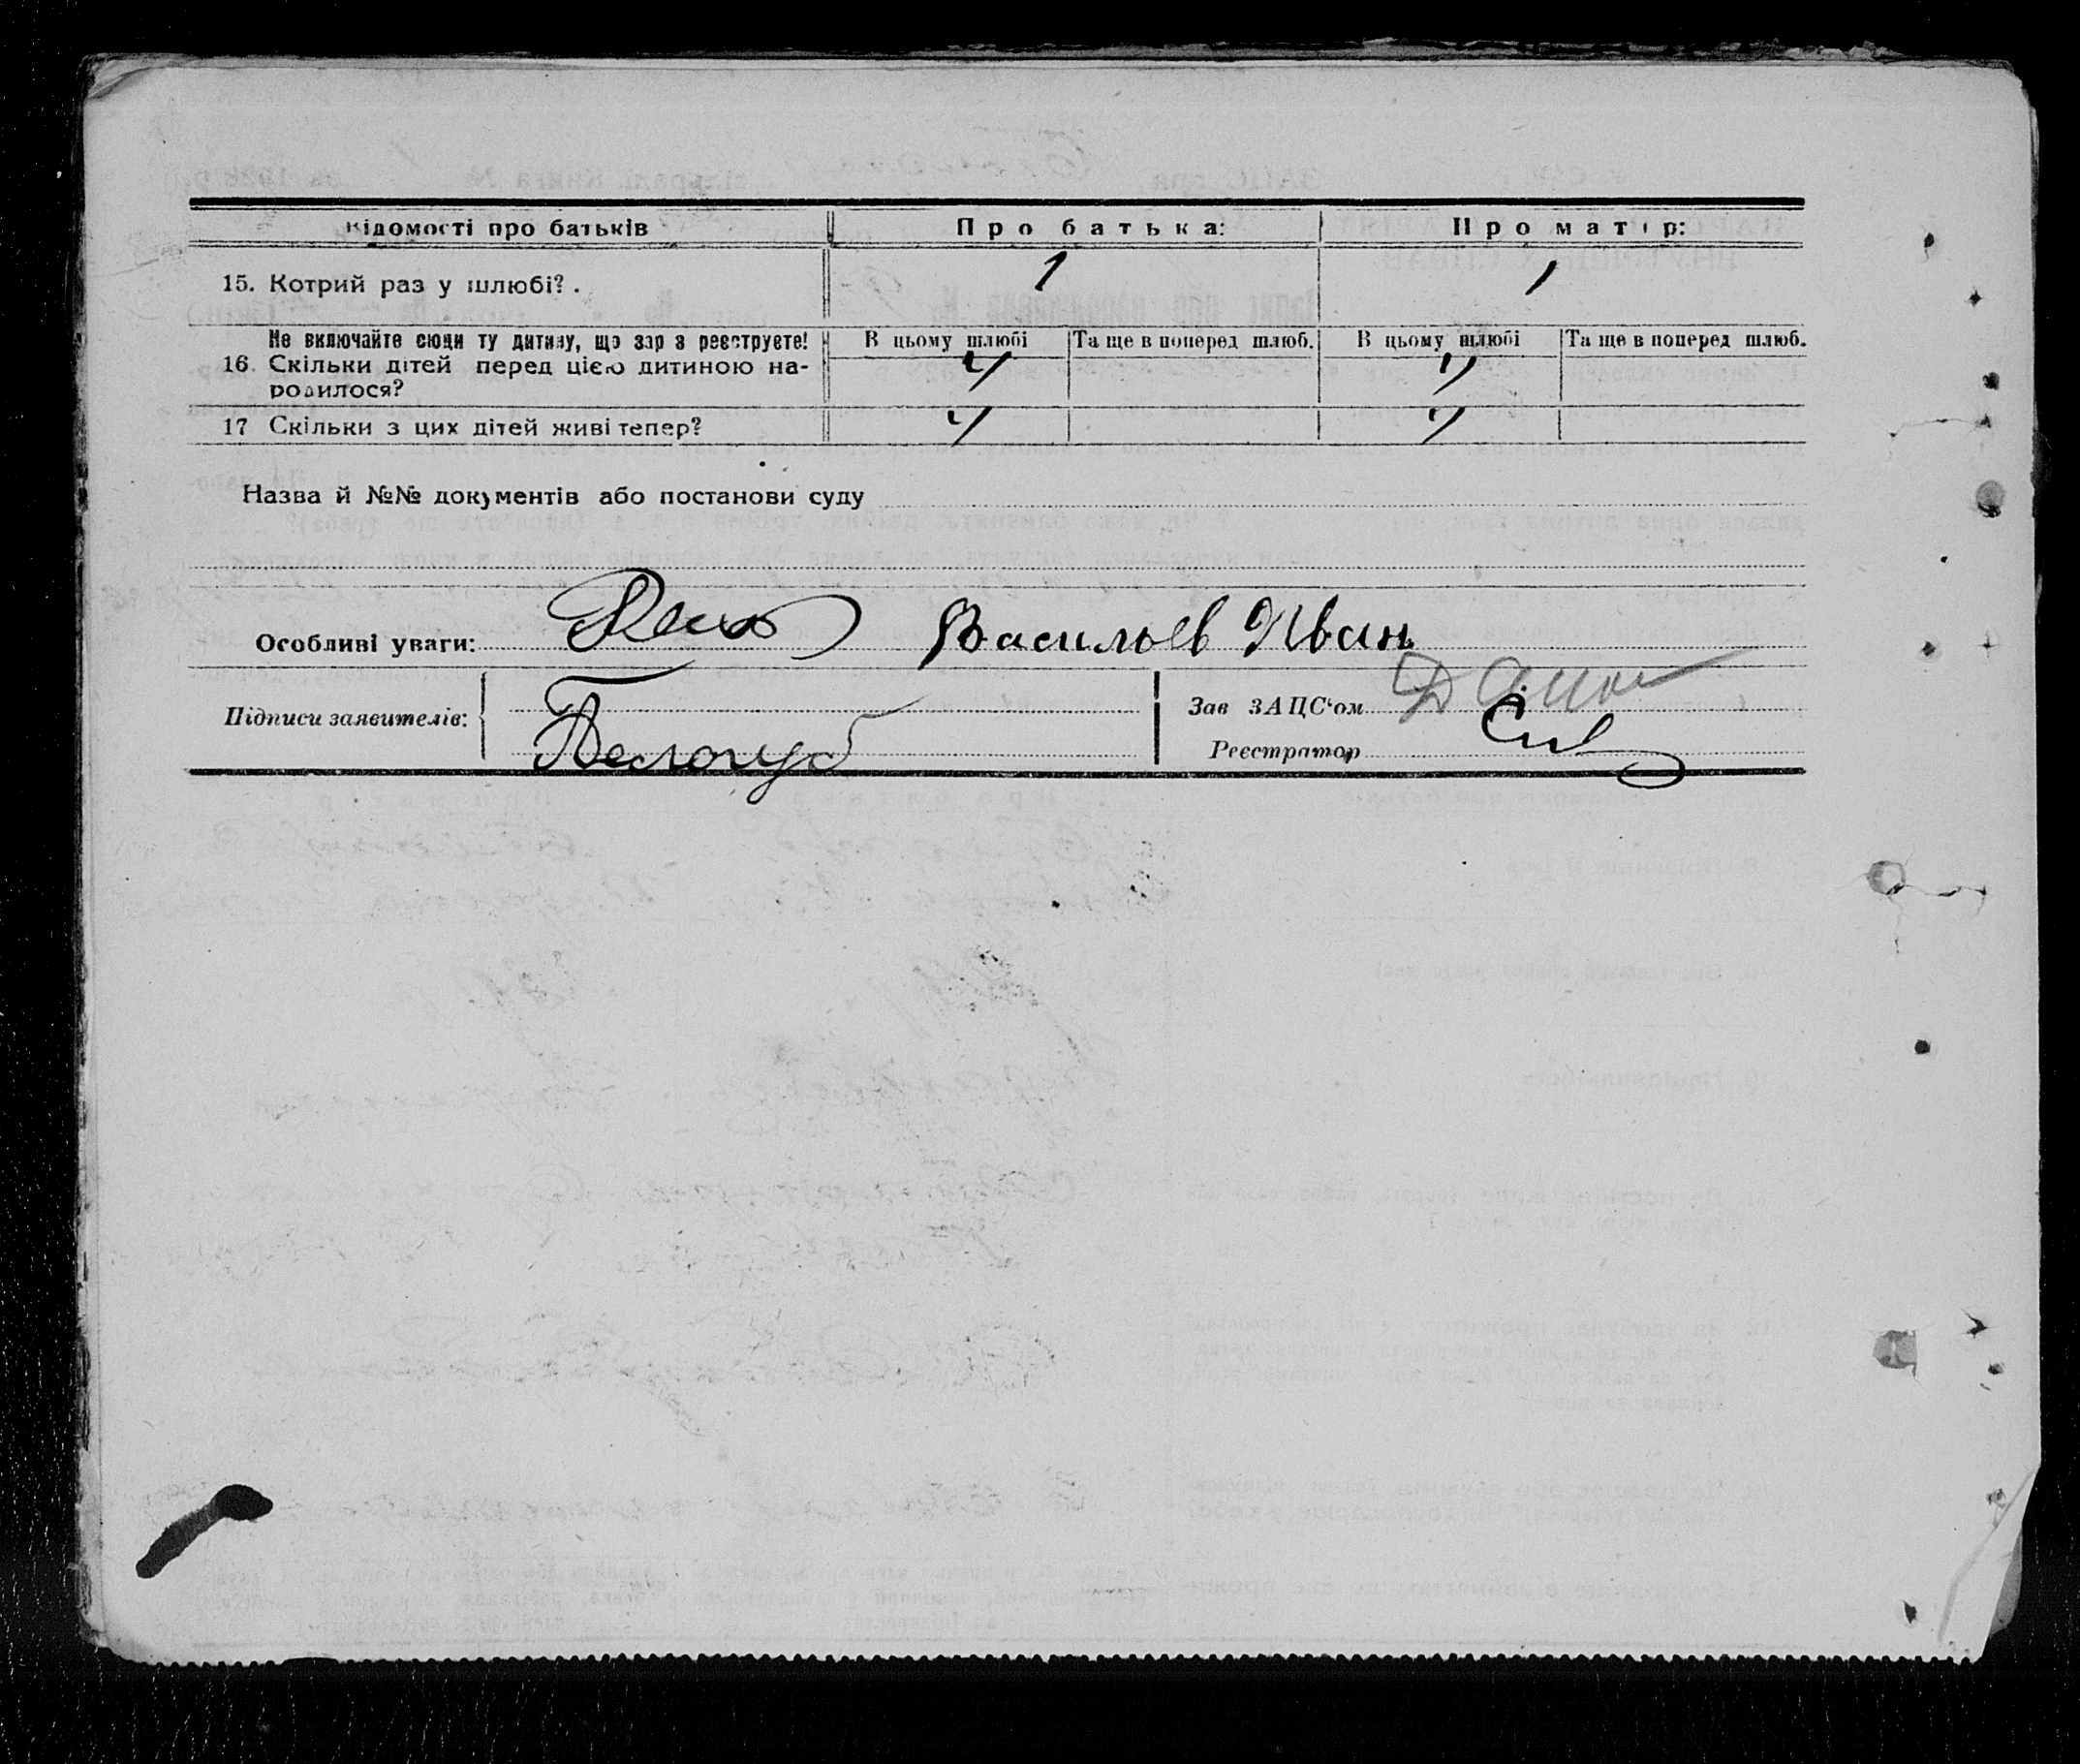 Відомості про батьків Про батька: Про матір:
15. Котрий раз у шлюбі?. 1 1
Не включайте сюди ту дитину, що зараз реєструєте! В цьому шлюбі Та ще в поперед шлюб. В цьому шлюбі Та ще в поперед шлюб.
16. Скільки дітей перед цією дитиною на- 4 4
родилося?
17 Скільки з цих дітей живі тепер? 4 4
Назва й №№ документів або постанови суду
Особливі уваги: Васильев Иван
Підписи заявителів: Зав ЗАЦС'ом
Белоуб Реєстратор